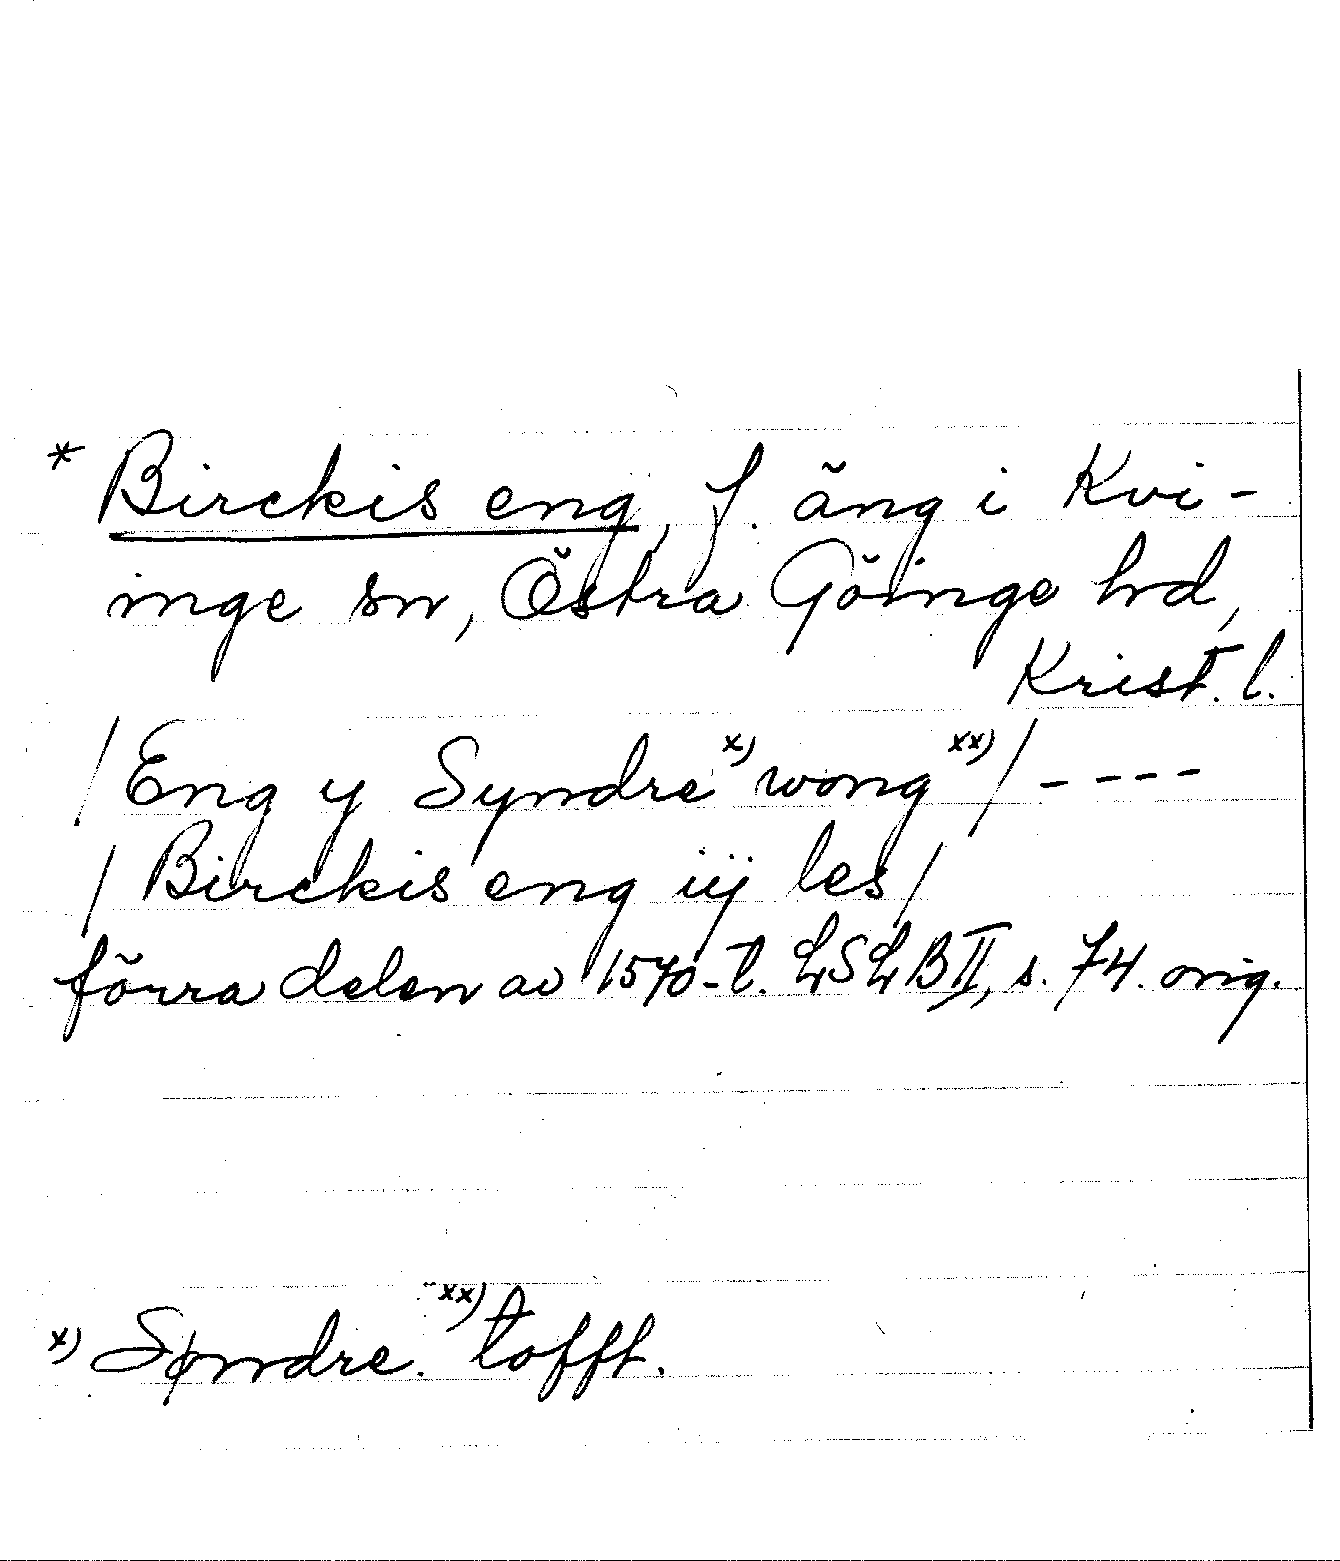 * Birckis eng, f. äng i Kvi-
inge sn, Östra Göinge hd,
Krist. l.
/Eng y Syndre x) wong xx)/ ----
/Birckis eng iij les/
förra delen av 1570-t. LSLB II, s. 74. orig.
x) Søndre. xx) tofft.